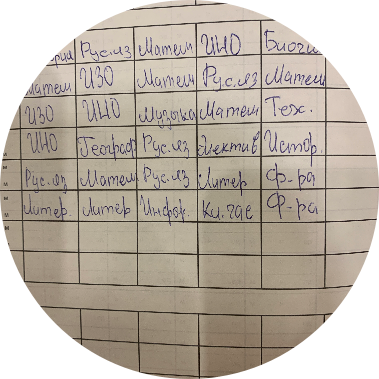 Рус.яз Матем ИНО Биоги
матем ИЗО Матем Рус.яз Матем
ИЗО ИНО Музыка Матем Тех.
ИНО Географ Рус.яз Электив Истор.
Рус.яз Матем Рус.яз Литер Ф-ра
Литер. Литер Инфор. Кл.час Ф-ра